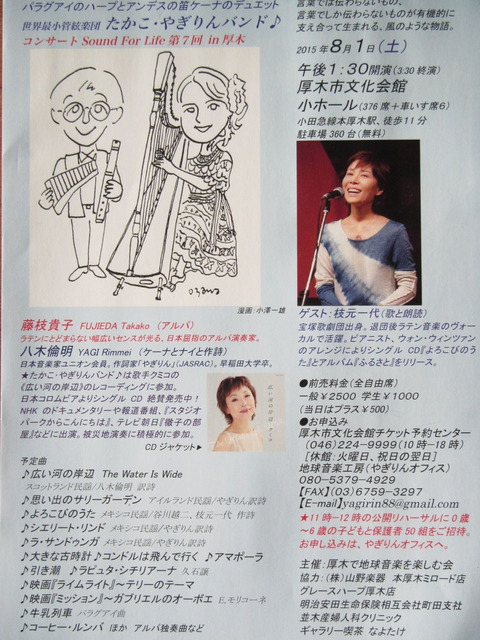 パラグアイのハープとアンデスの笛ケーナのデュエット
世界最小管弦楽団 たかこ・やぎりんバンド♪
コンサート Sound For Life 第7回 in 厚木
漫画:小澤一雄
藤枝貴子 FUJIEDA Takako （アルパ）
ラテンにとどまらない幅広いセンスが光る、日本屈指のアルパ演奏家。
八木倫明 YAGI Rimmei （ケーナとナイと作詩）
日本音楽家ユニオン会員。作詞家「やぎりん」(JASRAC)。早稲田大学卒。
★たかこ・やぎりんバンド♪は歌手クミコの
《広い河の岸辺》のレコーディングに参加。
日本コロムビアよりシングル CD 絶賛発売中！
NHK のドキュメンタリーや報道番組、『スタジオ
パークからこんにちは』、テレビ朝日『徹子の部
屋』などに出演。被災地演奏に積極的に参加。
CD ジャケット▶
広い河の岸辺 クミコ
予定曲
♪広い河の岸辺 The Water Is Wide
スコットランド民謡/八木倫明 訳詩
♪思い出のサリーガーデン アイルランド民謡/やぎりん訳詩
♪よろこびのうた メキシコ民謡/谷川越二、枝元一代 作詩
♪シエリート・リンド メキシコ民謡/やぎりん訳詩
♪ラ・サンドゥンガ メキシコ民謡/やぎりん訳詩
♪大きな古時計♪コンドルは飛んで行く ♪アマポーラ
♪引き潮 ♪ラピュタ・シチリアーナ 久石譲
♪映画『ライムライト』～テリーのテーマ
♪映画『ミッション』～ガブリエルのオーボエ E.モリコーネ
♪牛乳列車 パラグアイ曲
♪コーヒー・ルンバ ほか アルパ独奏曲など
言葉では伝わらないもの、
言葉でしか伝わらないものが有機的に
支え合って生まれる、風のような物語。
2015年8月1日（土）
午後1:30開演(3:30 終演)
厚木市文化会館
小ホール(376 席＋車いす席6)
小田急線本厚木駅、徒歩11分
駐車場 360 台（無料）
ゲスト：枝元一代(歌と朗読)
宝塚歌劇団出身。退団後ラテン音楽のヴォー
カルで活躍。ピアニスト、ウォン・ウィンツァン
のアレンジによりシングル CD『よろこびのう
た』とアルバム『ふるさと』をリリース。
●前売料金(全自由席)
一般￥2500 学生￥1000
(当日はプラス￥500)
●お申込み
厚木市文化会館チケット予約センター
(046)224-9999(10 時-18 時)
［休館：火曜日、祝日の翌日］
地球音楽工房(やぎりんオフィス)
080-5379-4929
【FAX】(03)6759-3297
【E-mail】yagirin88@gmail.com
★11 時～12 時の公開リハーサルに0 歳
～6 歳の子どもと保護者50 組をご招待。
お申し込みは、やぎりんオフィスへ。
主催：厚木で地球音楽を楽しむ会
協力：(株)山野楽器 本厚木ミロード店
グレースハープ厚木店
明治安田生命保険相互会社町田支社
並木産婦人科クリニック
ギャラリー喫茶 なよたけ